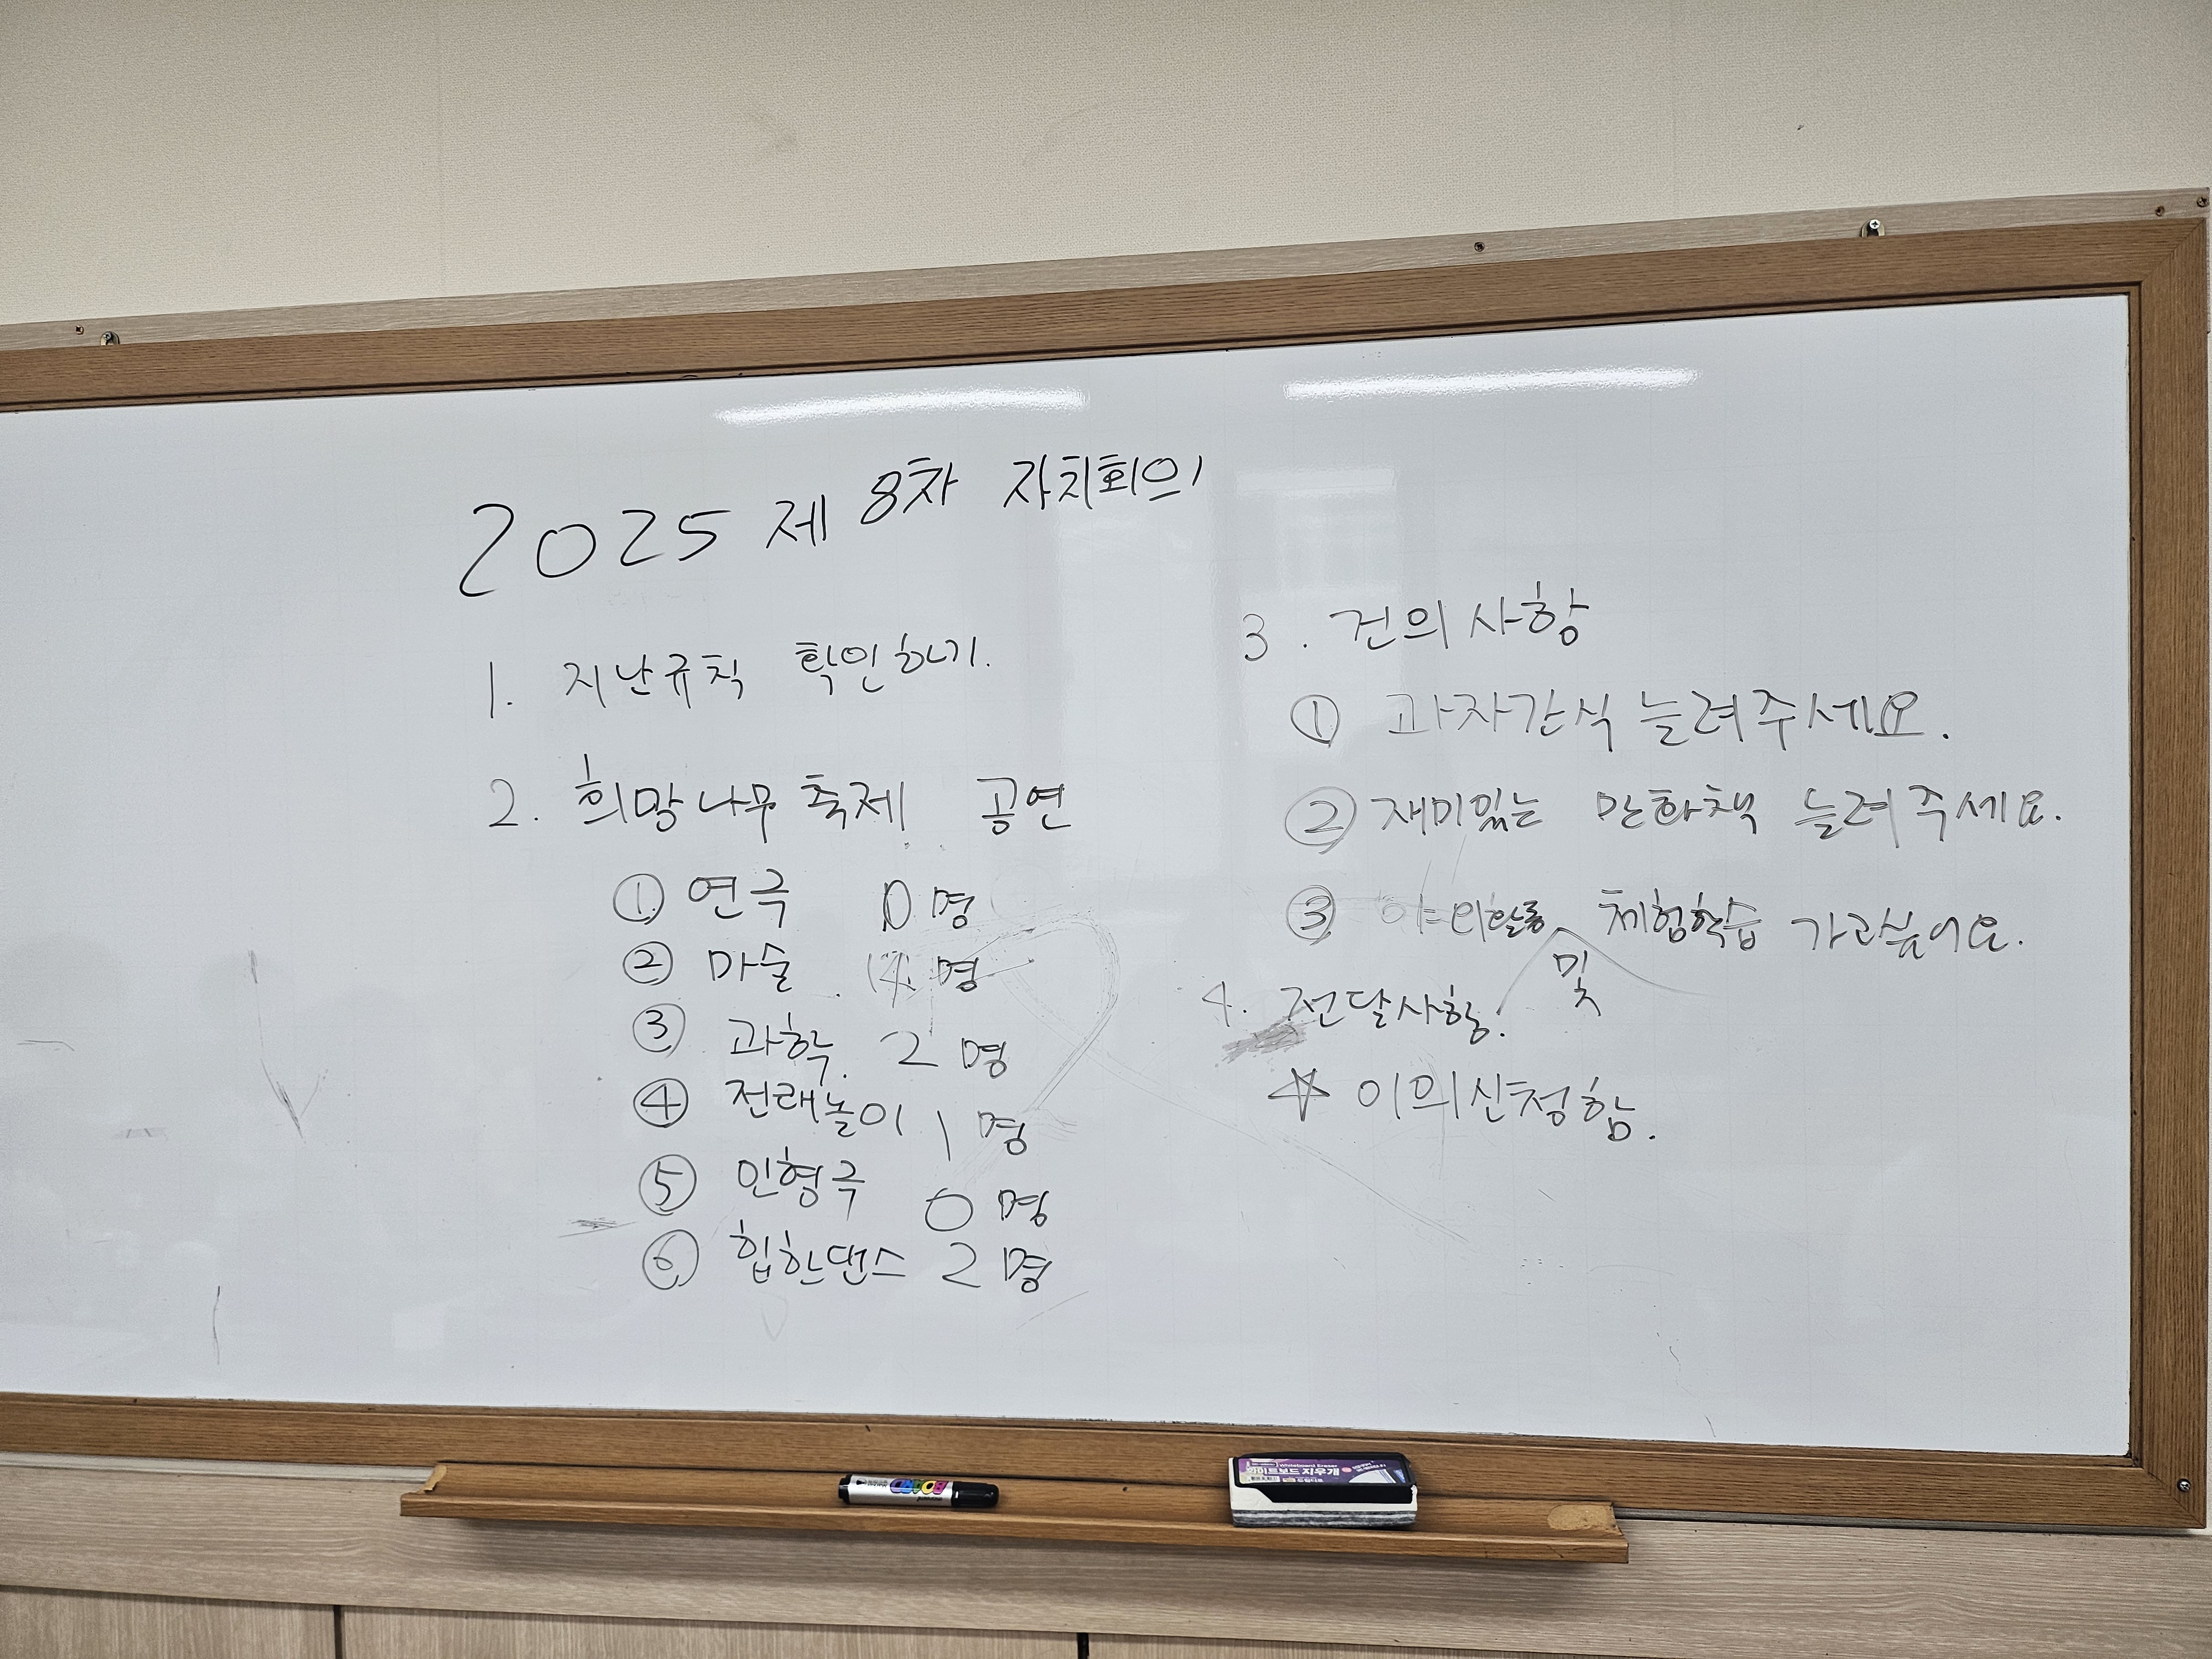 2025 제 8차 자치회의
1. 지난규칙 확인하기.
2. 희망나무 축제 공연
① 연극 0명
② 마술 4명
③ 과학. 2명
④ 전래놀이 1명
⑤ 인형극 0명
⑥ 힙한댄스 2명
3. 건의사항
① 과자간식 늘려주세요.
② 재미있는 만화책 늘려주세요.
③ 야외활동 및 체험학습 가고싶어요.
4. 전달사항.
☆ 이의신청함.
BOARD
Whiteboard Eraser
화이트보드 지우개